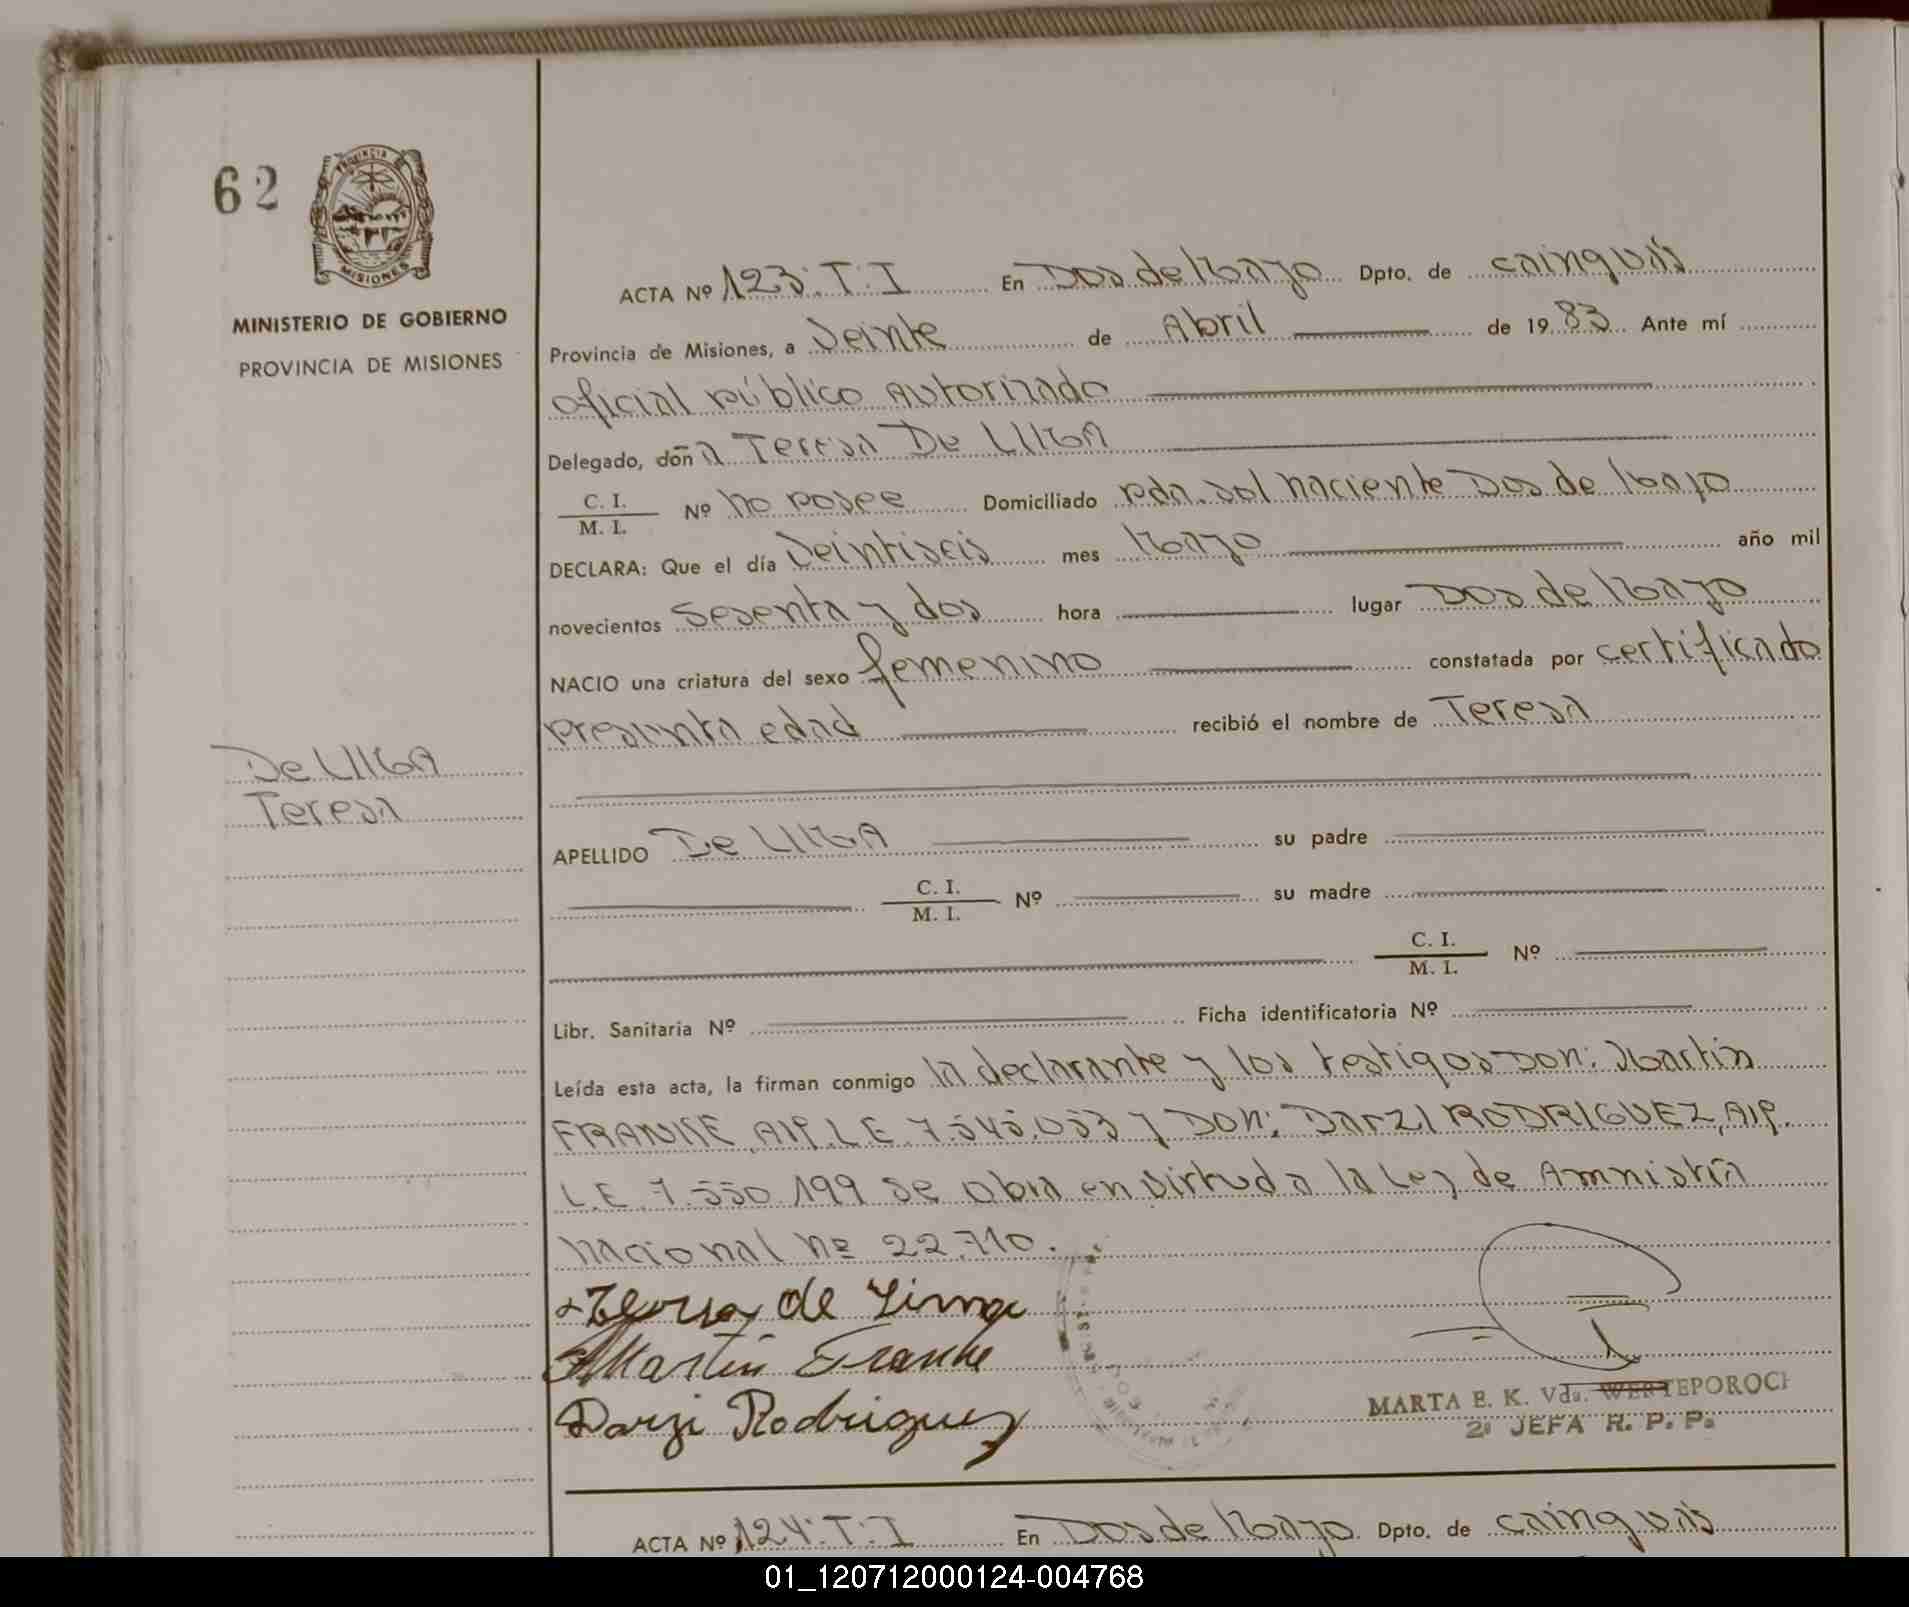 62
PROVINCIA DE
MISIONES
MINISTERIO DE GOBIERNO
PROVINCIA DE MISIONES
ACTA Nº 123: T: I En Dos de Mayo Dpto. de Cainguás
Provincia de Misiones, a Veinte de Abril de 1983 Ante mí
oficial público Autorizado
Delegado, doña Teresa De LIMA
C. I.
M. I. Nº no posee Domiciliado pda. sol naciente Dos de Mayo
DECLARA: Que el día Veintiseis mes Mayo año mil
novecientos sesenta y dos hora lugar Dos de Mayo
NACIO una criatura del sexo femenino constatada por certificado
presunta edad recibió el nombre de Teresa
De LIMA
Teresa
APELLIDO De LIMA su padre
C. I.
M. I. Nº su madre
C. I.
M. I. Nº
Libr. Sanitaria Nº Ficha identificatoria Nº
Leída esta acta, la firman conmigo la declarante y los testigos Don: Martin
FRANKE, AIP. L.E. 7.545.053 y Don: Darzi RODRIGUEZ, AIP.
L.E. 7.550.199 se obra en virtud a la Ley de Amnistía
nacional nº 22.710.
Teresa de Lima
Martin Franke
Darzi Rodriguez
MARTA E. K. Vda. WERTEPOROCH
2ª JEFA R. P. P.
ACTA Nº 124: T: I En Dos de Mayo Dpto. de Cainguás
01_120712000124-004768